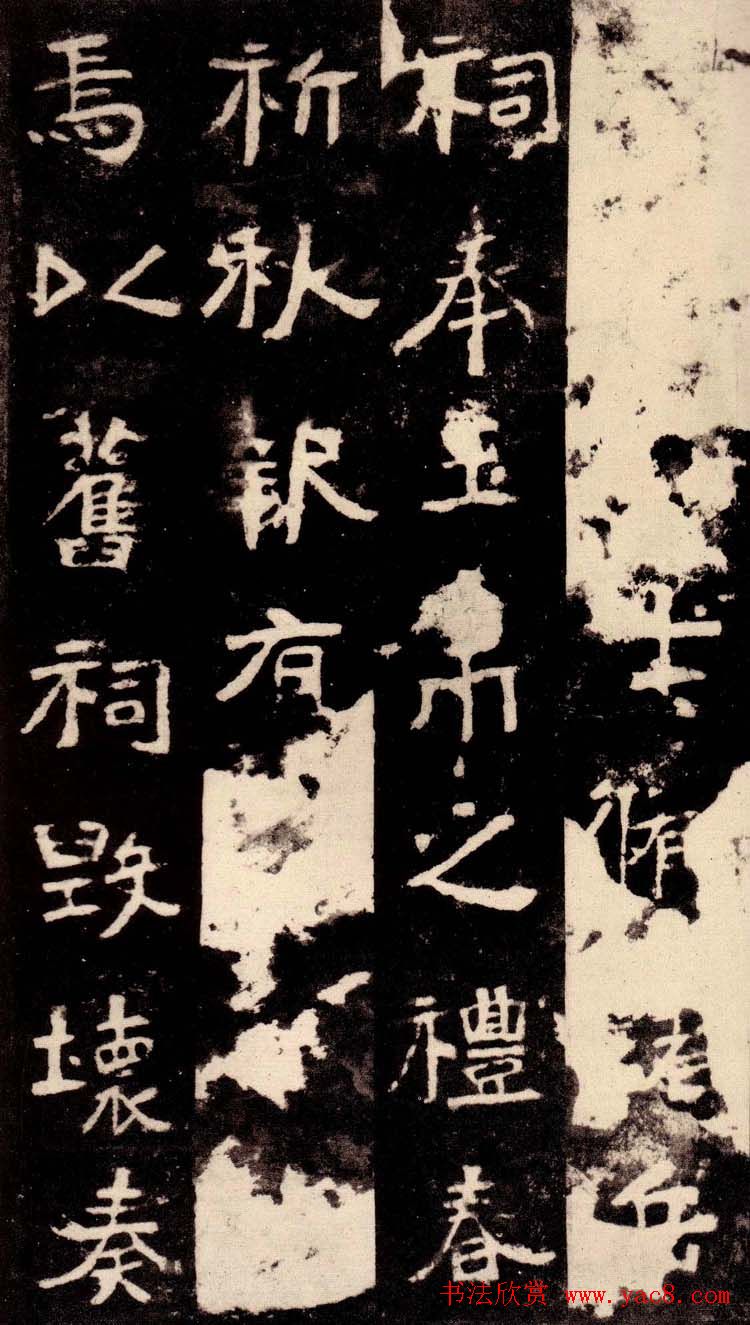 脩
祠奉玉帛之禮春
祈秋有
焉以舊祠毀壞奏
书法欣赏 www.yac8.com